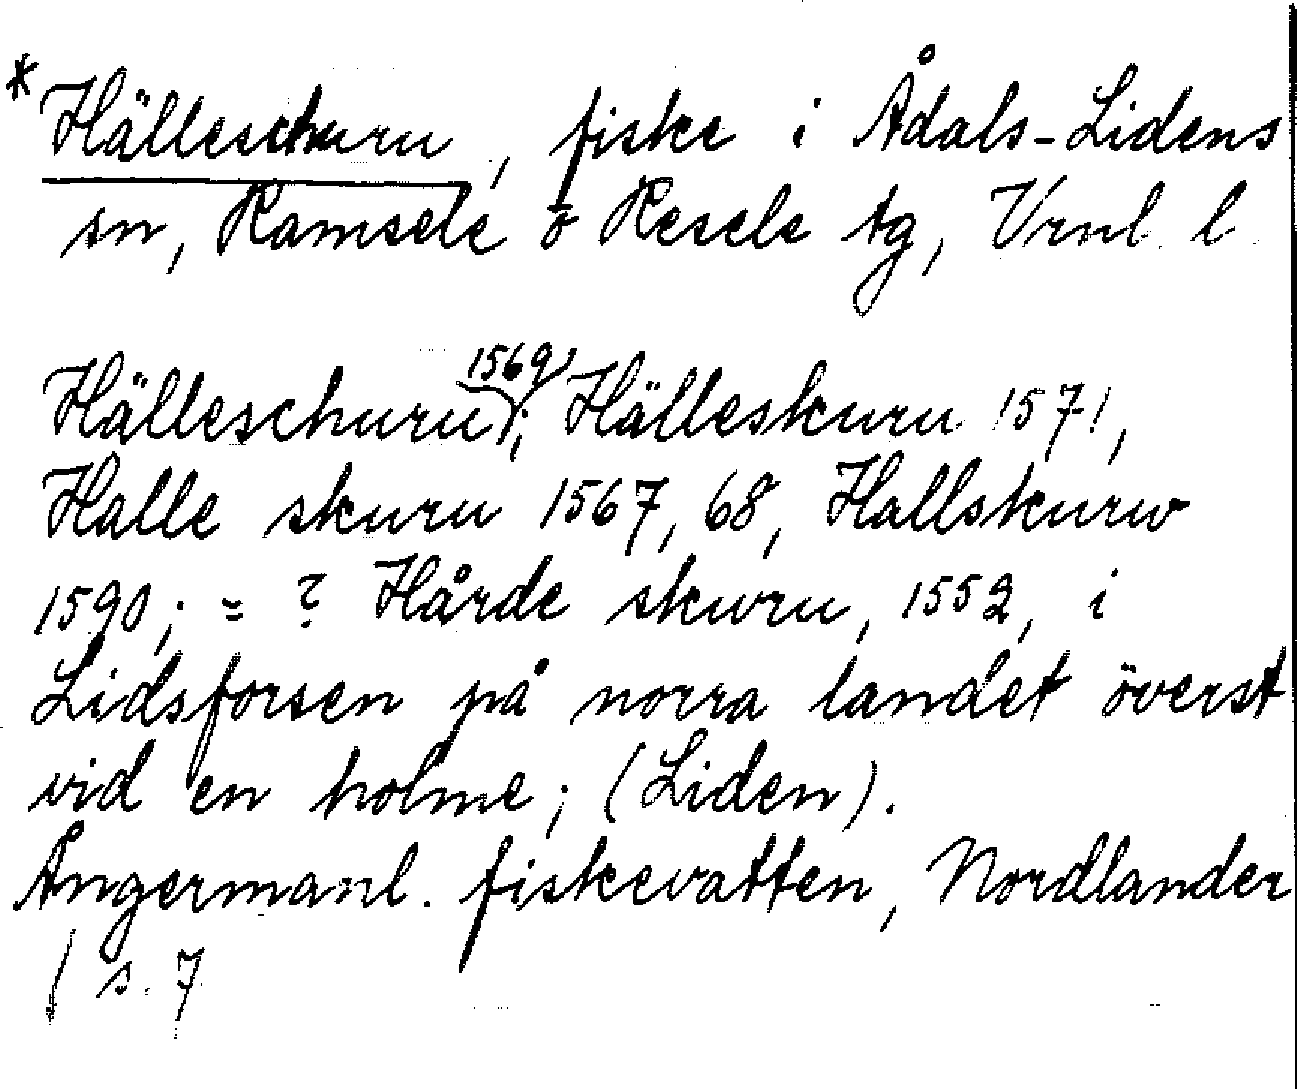 * Hälleschuru, fiske i Ådals-Lidens
sn, Ramsele o Resele tg, Vrnl. l.
Hälleschuru 1569; Hälleskuru 1571,
Halle skuru 1567, 68, Hallskurw
1590; = ? Hårde skuru, 1552, i
Lidsforsen på norra landet överst
vid en holme; (Liden).
Ångermanl. fiskevatten, Nordlander
s. 7